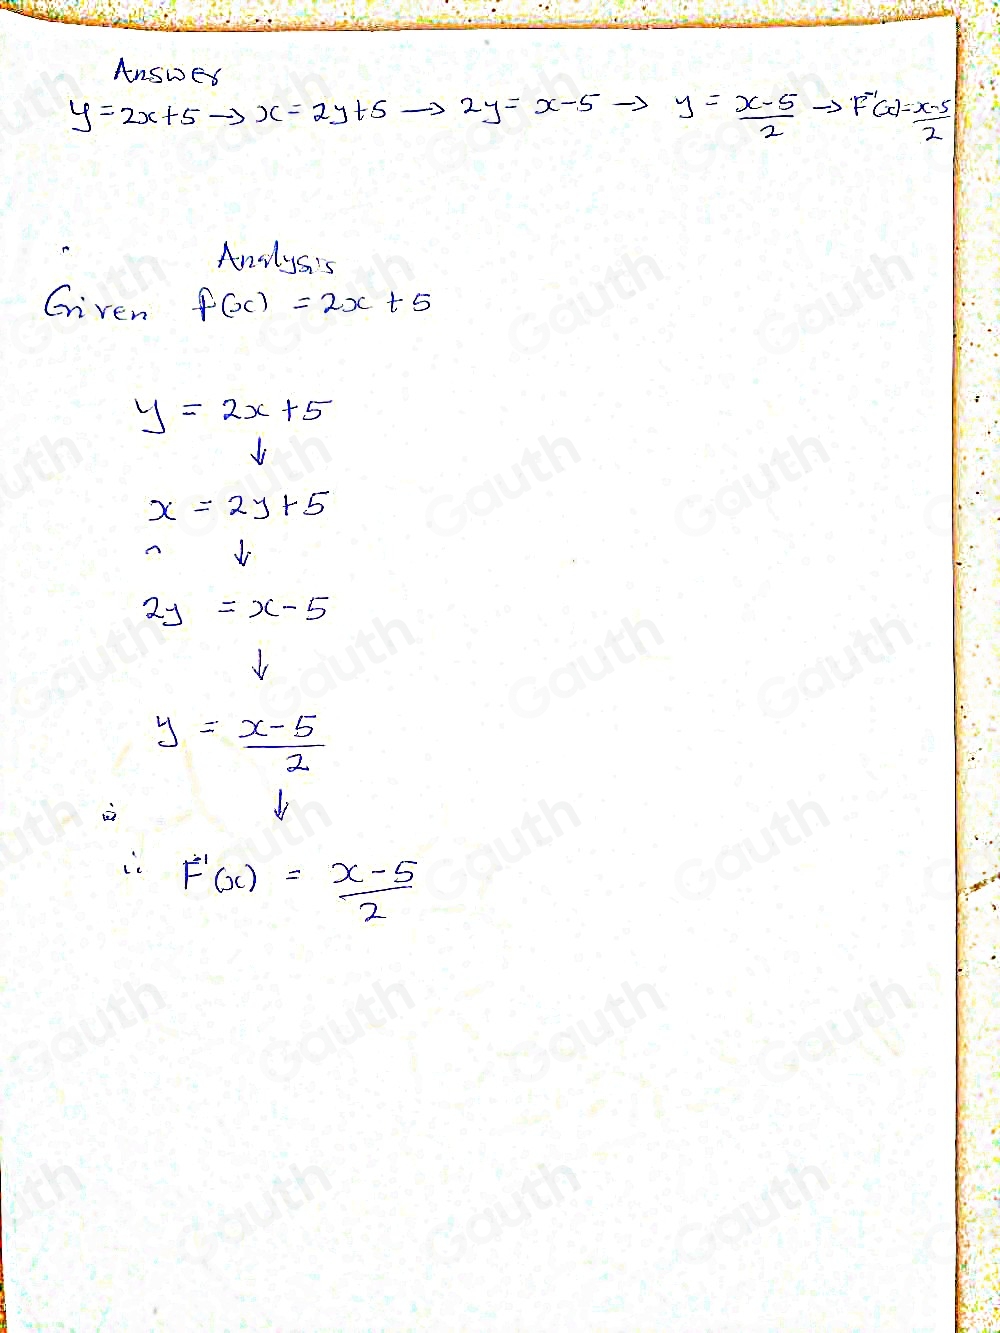 Answer
y = 2x+5 → x = 2y+5 → 2y = x-5 → y = x-5/2 → F⁻¹(x) = x-5/2
Analysis
Given f(x) = 2x + 5
y = 2x + 5
↓
x = 2y + 5
↓
2y = x - 5
↓
y = x - 5/2
↓
∴ F⁻¹(x) = x - 5/2